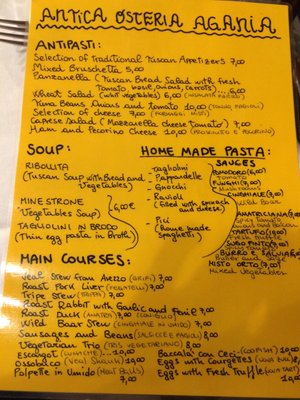 ANTICA OSTERIA AGANIA
ANTIPASTI:
Selection of Traditional Tuscan Appetizers 7,00
Mixed Bruschetta 5,00
Panzanella (Tuscan Bread Salad with fresh
Tomato, onions, carrots...) 6,00
Wheat Salad 6,00
Tuna Beans Onions and tomato 10,00
Selection of cheese 7,00 (FORMAGGI MISTI)
Caprese Salad (Mozzarella Cheese Tomato) 7,00
Ham and Pecorino Cheese 10,00 (PROSCIUTTO E PECORINO)
SOUP:
RIBOLLITA
(Tuscan Soup with Bread and
Vegetables)
MINESTRONE
(Vegetables Soup)
TAGLIOLINI IN BRODO
(Thin egg pasta in Broth)
6,00€
HOME MADE PASTA:
- Tagliolini
- Pappardelle
- Gnocchi
- Ravioli
(filled with spinach
and cheese)
- Pici
(Home made
Spaghetti)
SAUCES
POMODORO (6,00)
Tomato
FUNGHI (7,00)
Mushrooms
CINGHIALE (7,00)
Wild Boar
AMATRICIANA
TARTUFO
SUGO FINTO
BURRO E SALVIA
Butter and Sage
MISTO ORTO (7,00)
Mixed Vegetables
MAIN COURSES:
Veal Stew from Arezzo (GRIFI) 7,00
Roast Pork Liver (FEGATELLI) 7,00
Tripe Stew (TRIPPA) 7,00
Roast Rabbit with Garlic and Fenil 7,00
Roast Duck (ANATRA) 7,00
Wild Boar Stew (CINGHIALE IN UMIDO) 7,00
Sausages and Beans (SALSICCE E FAGIOLI) 8,00
Vegetarian Trio (TRIS VEGETARIANO) 8,00
Escargot (LUMACHE) ...10,00
Ossobuco (Veal Shank) 10,00
Polpette in Umido (Meat Balls)
7,00
Baccalà con Ceci (CODFISH) 10,00
Eggs with Courgettes
Eggs with Fresh Truffle